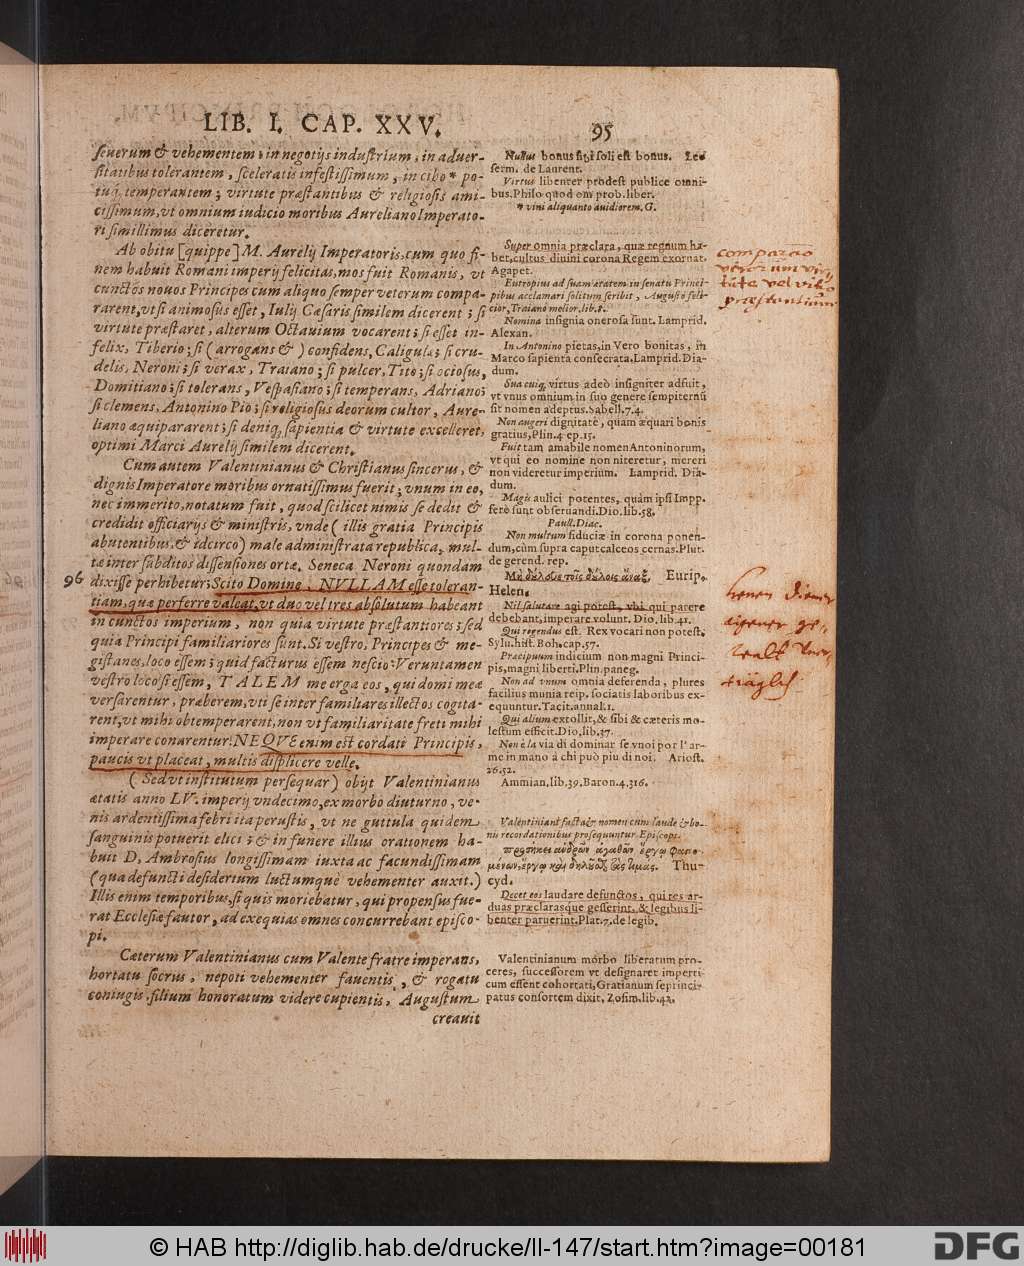 LIB. I. CAP. XXV.
95
seuerum & vehementem; in negotijs industrium, in aduer-
sitatibus tolerantem, sceleratis infestissimum, in cibo * po-
tuq́; temperantem; virtute præstantibus & religiosis ami-
cissimum, vt omnium iudicio moribus Aureliano Imperato-
ri simillimus diceretur.
Ab obitu [quippe] M. Aurelij Imperatoris, cum quo fi-
nem habuit Romani imperij felicitas, mos fuit Romanis, vt
cunctos nouos Principes cum aliquo semper veterum compa-
rarent, vt si animosus esset, Iulij Cæsaris similem dicerent; si
virtute præstaret, alterum Octauium vocarent; si esset in-
felix, Tiberio; si (arrogans &) confidens, Caligulæ; si cru-
delis, Neroni; si verax, Traiano; si pulcer, Tito; si otiosus,
Domitiano; si tolerans, Vespasiano; si temperans, Adriano;
si clemens, Antonino Pio; si religiosus deorum cultor, Aure-
liano æquipararent; si deniq́; sapientia & virtute excelleret,
optimi Marci Aurelij similem dicerent.
Cum autem Valentinianus & Christianus sincerus, &
dignis Imperatore moribus ornatissimus fuerit; vnum in eo,
nec immerito, notatum fuit, quod scilicet nimis se dedit &
credidit officiarijs & ministris, vnde (illis gratia Principis
abutentibus, & idcirco) male administrata republica, mul-
tæ inter subditos dissensiones ortæ. Seneca Neroni quondam
96
dixisse perhibetur; Scito Domine, NVLLAM esse toleran-
tiam, quæ perferre valeat, vt duo vel tres absolutum habeant
in cunctos imperium, non quia virtute præstantiores; sed
quia Principi familiariores sunt. Si vestro, Principes & me-
gistanes, loco essem; quid facturus essem nescio: Veruntamen
vestro loco si essem, TALEM me erga eos, qui domi meæ
versarentur, præberem, vti se inter familiares illectos cogita-
rent, vt mihi obtemperarent, non vt familiaritate freti mihi
imperare conarentur: NEQVE enim est cordati Principis,
paucis vt placeat, multis displicere velle.
(Sed vt institutum persequar) obijt Valentinianus
ætatis anno LV. imperij vndecimo, ex morbo diuturno, ve-
nis ardentissima febri ita perustis, vt ne guttula quidem
sanguinis potuerit elici; & in funere illius orationem ha-
buit D. Ambrosius longissimam iuxta ac facundissimam
(qua defuncti desiderium luctumquè vehementer auxit.)
Illis enim temporibus, si quis moriebatur, qui propensus fue-
rat Ecclesiæ fautor, ad exequias omnes concurrebant episco-
pi.
Cæterum Valentinianus cum Valente fratre imperans,
hortatu socrus, nepoti vehementer fauentis, & rogatu
coniugis, filium honoratum videre cupientis, Augustum
creauit
Nullus bonus sibi soli est bonus. Leo
serm. de Laurent.
Virtus libenter prodest publice omni-
bus. Philo quod om prob. liber.
* vini aliquanto auidiorem. G.
Super omnia præclara, quæ regnum ha-
bet, cultus diuini corona Regem exornat.
Agapet.
Eutropius ad suam ætatem in senatu Princi-
pibus acclamari solitum scribit, Augusto feli-
cior, Traiano melior, lib. 8.
Nomina insignia onerosa sunt. Lamprid.
Alexan.
In Antonino pietas, in Vero bonitas, in
Marco sapientia consecrata, Lamprid. Dia-
dum.
Sua cuiq; virtus adeò insigniter adfuit,
vt vnus omnium in suo genere sempiternū
sit nomen adeptus. Sabell. 7. 4.
Non augeri dignitatē, quam æquari bonis
gratius, Plin. 4 ep. 15.
Fuit tam amabile nomen Antoninorum,
vt qui eo nomine non niteretur, mereri
non videretur imperium. Lamprid. Dia-
dum.
Magis aulici potentes, quàm ipsi Impp.
ferè sunt obseruandi. Dio. lib. 58.
Paull. Diac.
Non multum fiduciæ in corona ponen-
dum, cùm supra caput calceos cernas. Plut.
de gerend. rep.
Eurip.
Helen.
Nil salutare agi potest, vbi qui parere
debebant, imperare volunt. Dio, lib. 41.
Qui regendus est. Rex vocari non potest.
Sylu. hist. Boh. cap. 57.
Præcipuum indicium non magni Princi-
pis, magni liberti. Plin. paneg.
Non ad vnum omnia deferenda, plures
facilius munia reip. sociatis laboribus ex-
equuntur. Tacit. annal. 1.
Qui alium extollit, & sibi & cæteris mo-
lestum efficit. Dio, lib. 37.
Non è la via di dominar se vnoi por l' ar-
me in mano à chi può piu di noi. Ariost.
26. 52.
Ammian, lib. 39. Baron. 4. 316.
Valentiniani facta & nomen cum laude & bo-
nis recordationibus prosequuntur Episcopi.
Thu-
cyd.
Decet eos laudare defunctos, qui res ar-
duas præclarasque gesserint, & legibus li-
benter paruerint. Plat. 7. de legib.
Valentinianum mòrbo liberatum pro-
ceres, successorem vt designaret imperti-
cum essent cohortati, Gratianum se princi-
patus consortem dixit, Zosim. lib. 42.
comparatio
veterum vir-
tute vel vitio
præstantium
herren diener
eigener ge-
walt
träglich
© HAB http://diglib.hab.de/drucke/ll-147/start.htm?image=00181
DFG